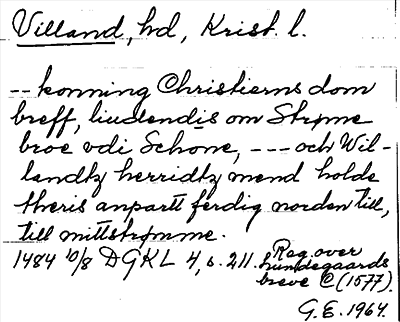 Villand, hd, Krist. l.
-- konning Christierns dom
breff, liudendis om Strøme
broe vdi Schone, --- och Wil-
landtz herridtz mend holde
theris anpartt ferdig norden till,
till mittstrømme.
1484 10/8 DGKL 4, s. 211. Reg. over
Lundegaards
breve C (1577).
G.E. 1964.